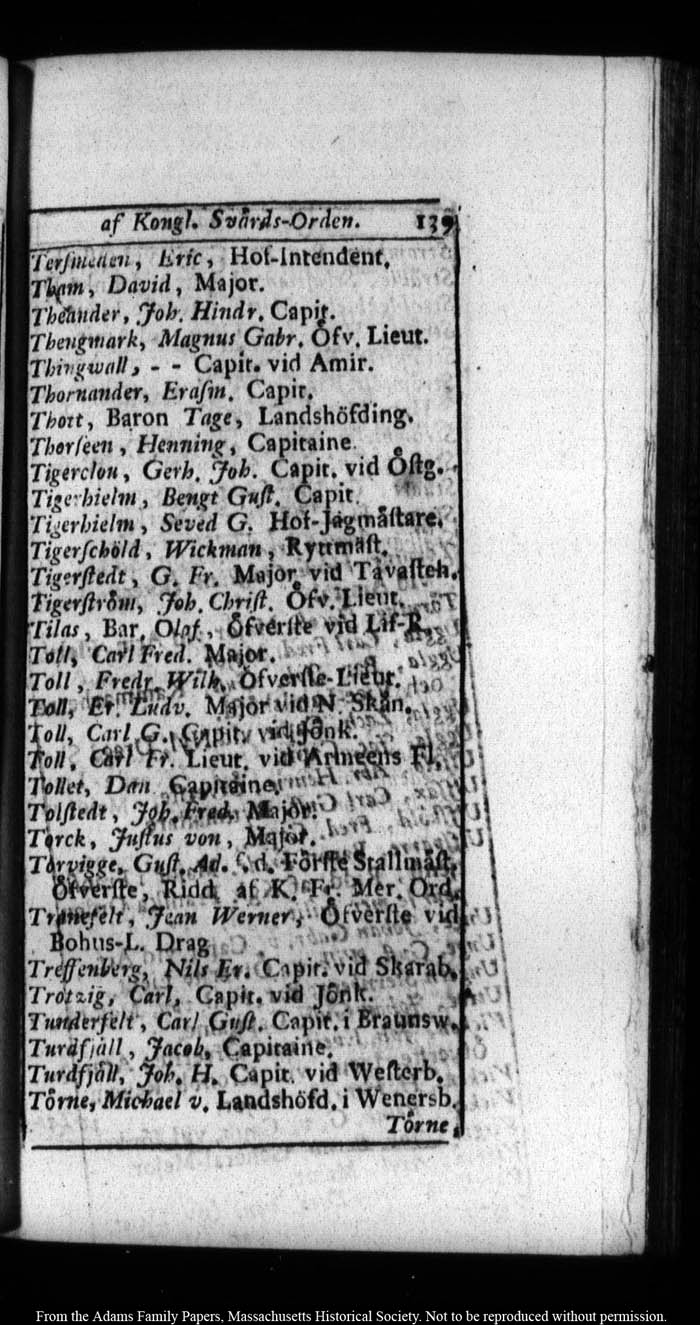 af Kongl. Svårds-Orden. 139
Terſmeden, Eric, Hof-Intendent.
Tham, David, Major.
Theander, Joh. Hindr. Capit.
Thengmark, Magnus Gabr. Öfv. Lieut.
Thingwall, - - Capit. vid Amir.
Thornander, Eraſm. Capit.
Thott, Baron Tage, Landshöfding.
Thorſeen, Henning, Capitaine.
Tigerclou, Gerh. Joh. Capit. vid Öſtg.
Tigerhielm, Bengt Guſt. Capit.
Tigerhielm, Seved G. Hof-Jägmåſtare.
Tigerſchöld, Wickman, Ryttmåſt.
Tigerſtedt, G. Fr. Major vid Tavaſteh.
Tigerſtröm, Joh. Chriſt. Öfv. Lieut.
Tilas, Bar. Olof, Öfverſte vid Lif-R.
Toll, Carl Fred. Major.
Toll, Fredr. Wilh. Öfverſte-Lieut.
Toll, Er. Ludv. Major vid N. Skån.
Toll, Carl G. Capit. vid Jönk.
Toll, Carl Fr. Lieut. vid Armeens Fl.
Tollet, Dan Capitaine.
Tolſtedt, Joh. Fred. Major.
Torck, Juſtus von, Major.
Torvigge, Guſt. Ad. Förſte Stallmåſt.
Öfverſte, Ridd. af K. Fr. Mer. Ord.
Tranefelt, Jean Werner, Öfverſte vid
Bohus-L. Drag
Treffenberg, Nils Er. Capit. vid Skarab.
Trotzig, Carl, Capit. vid Jönk.
Tunderfelt, Carl Guſt. Capit. i Braunsw.
Turdfjäll, Jacob, Capitaine.
Turdfjäll, Joh. H. Capit. vid Weſterb.
Törne, Michael v. Landshöfd. i Wenersb.
Törne,
From the Adams Family Papers, Massachusetts Historical Society. Not to be reproduced without permission.